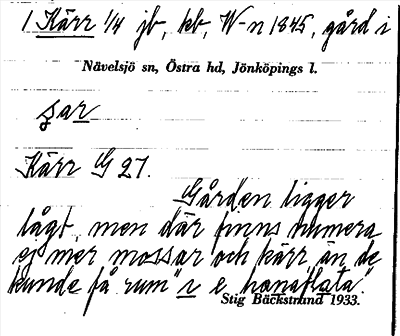 1 Kärr 1/4 jb, kb, W-n 1845, gård i
Nävelsjö sn, Östra hd, Jönköpings l.
Kärr G 27.
Gården ligger
lågt, men där finns numera
ej mer mossar och kärr än de
kunde få rum "i e
Stig Bäckstrand 1933.